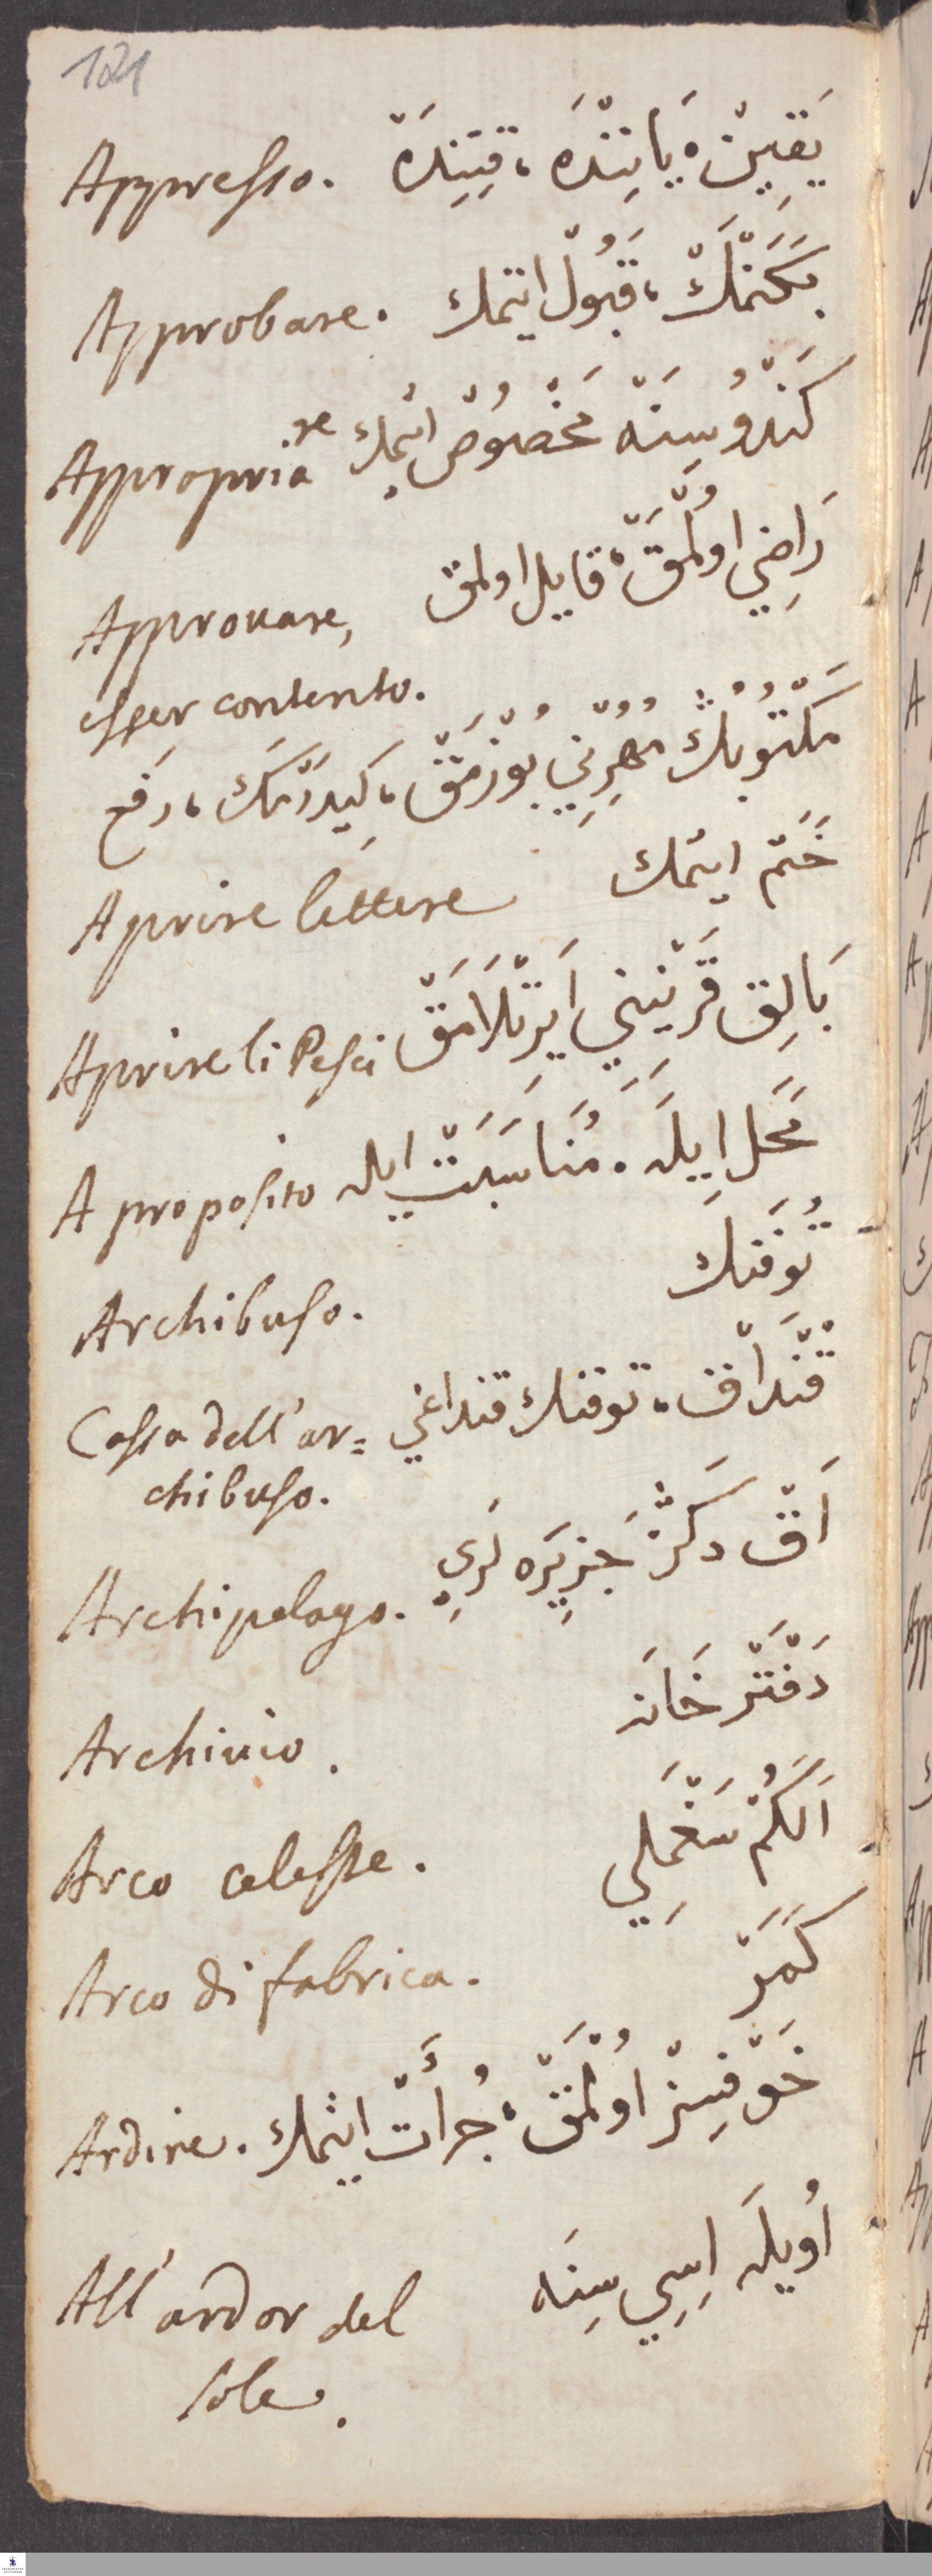 121
Appresso. يَقِيِنْ، يَانِنْدَه، قِتِنِدَهْ
Approbare. بَكَنْمَكْ، قَبُولْ ايتمك
Appropriare كَنْدُوسِنَهْ مَخْصُوصْ ايتمك
Approuare, رَاضِي اوُلْمَقْ، قايل اولمق
esser contento.
مَكْتُوبُكْ مُهْرِنِي بُوزْمَقْ، كِيدَرْمَكْ، رفع
Aprire lettere خَتم ايتمك
Aprire li Pesci بَالِق قَرْنِيني اَيِرْتْلَامَقْ
A proposito مَحَل اِيلَه. مُنَاسَبَتْ ايله
Archibuso. تُوفَنك
Cassa dell'ar= قُنْدَاقْ، توفنك قنداغي
chibuso.
Archipelago. اَقْ دَكْزْ جَزِيرَه لَرِي
Archiuio. دَفْتَرْ خَانَه
Arco celeste. اَلَكُمْ سَغْمَلِي
Arco di fabrica. كَمَرْ
Ardire. خَوْفِسِزْ اوُلْمَقْ، جُرأَتْ ايتمك
All'ardor del اُويلَه اِسِي سِنَه
sole.